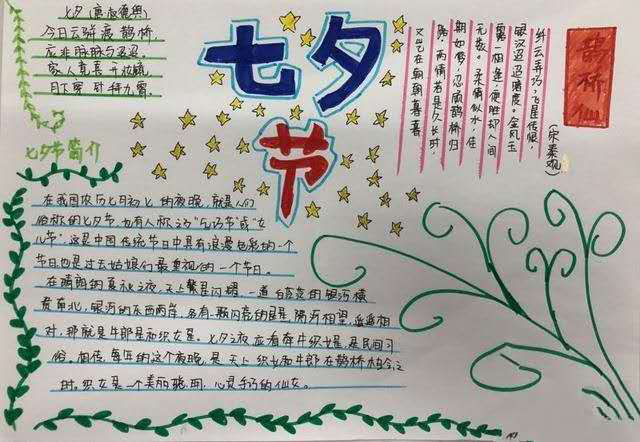 七夕节
七夕（唐 权德舆）
今日云骈渡鹊桥，
应非脉脉与迢迢。
家人竟喜开妆镜，
月下穿针拜九霄。
鹊桥仙
（宋 秦观）
纤云弄巧，飞星传恨
银汉迢迢暗度。金风玉
露一相逢，便胜却人间
无数。柔情似水，佳
期如梦，忍顾鹊桥归
路，两情若是久长时
又岂在朝朝暮暮
七夕节简介
在我国农历七月初七的夜晚，就是人们
俗称的七夕节，也有人称之为“乞巧节”或“女
儿节”，这是中国传统节日中最具有浪漫色彩的一个
节日也是过去姑娘们最重视的一个节日。
在晴朗的夏秋之夜，天上繁星闪耀，一道白茫茫的银河横
贯南北，银河的东西两岸，各有一颗闪亮的星星，隔河相望，遥遥相
对，那就是牛郎星和织女星。七夕之夜应看牵牛织女星，是民间习
俗。相传，每年的这个夜晚，是天上织女和牛郎在鹊桥相会之
时，织女是一个美丽聪明、心灵手巧的仙女。